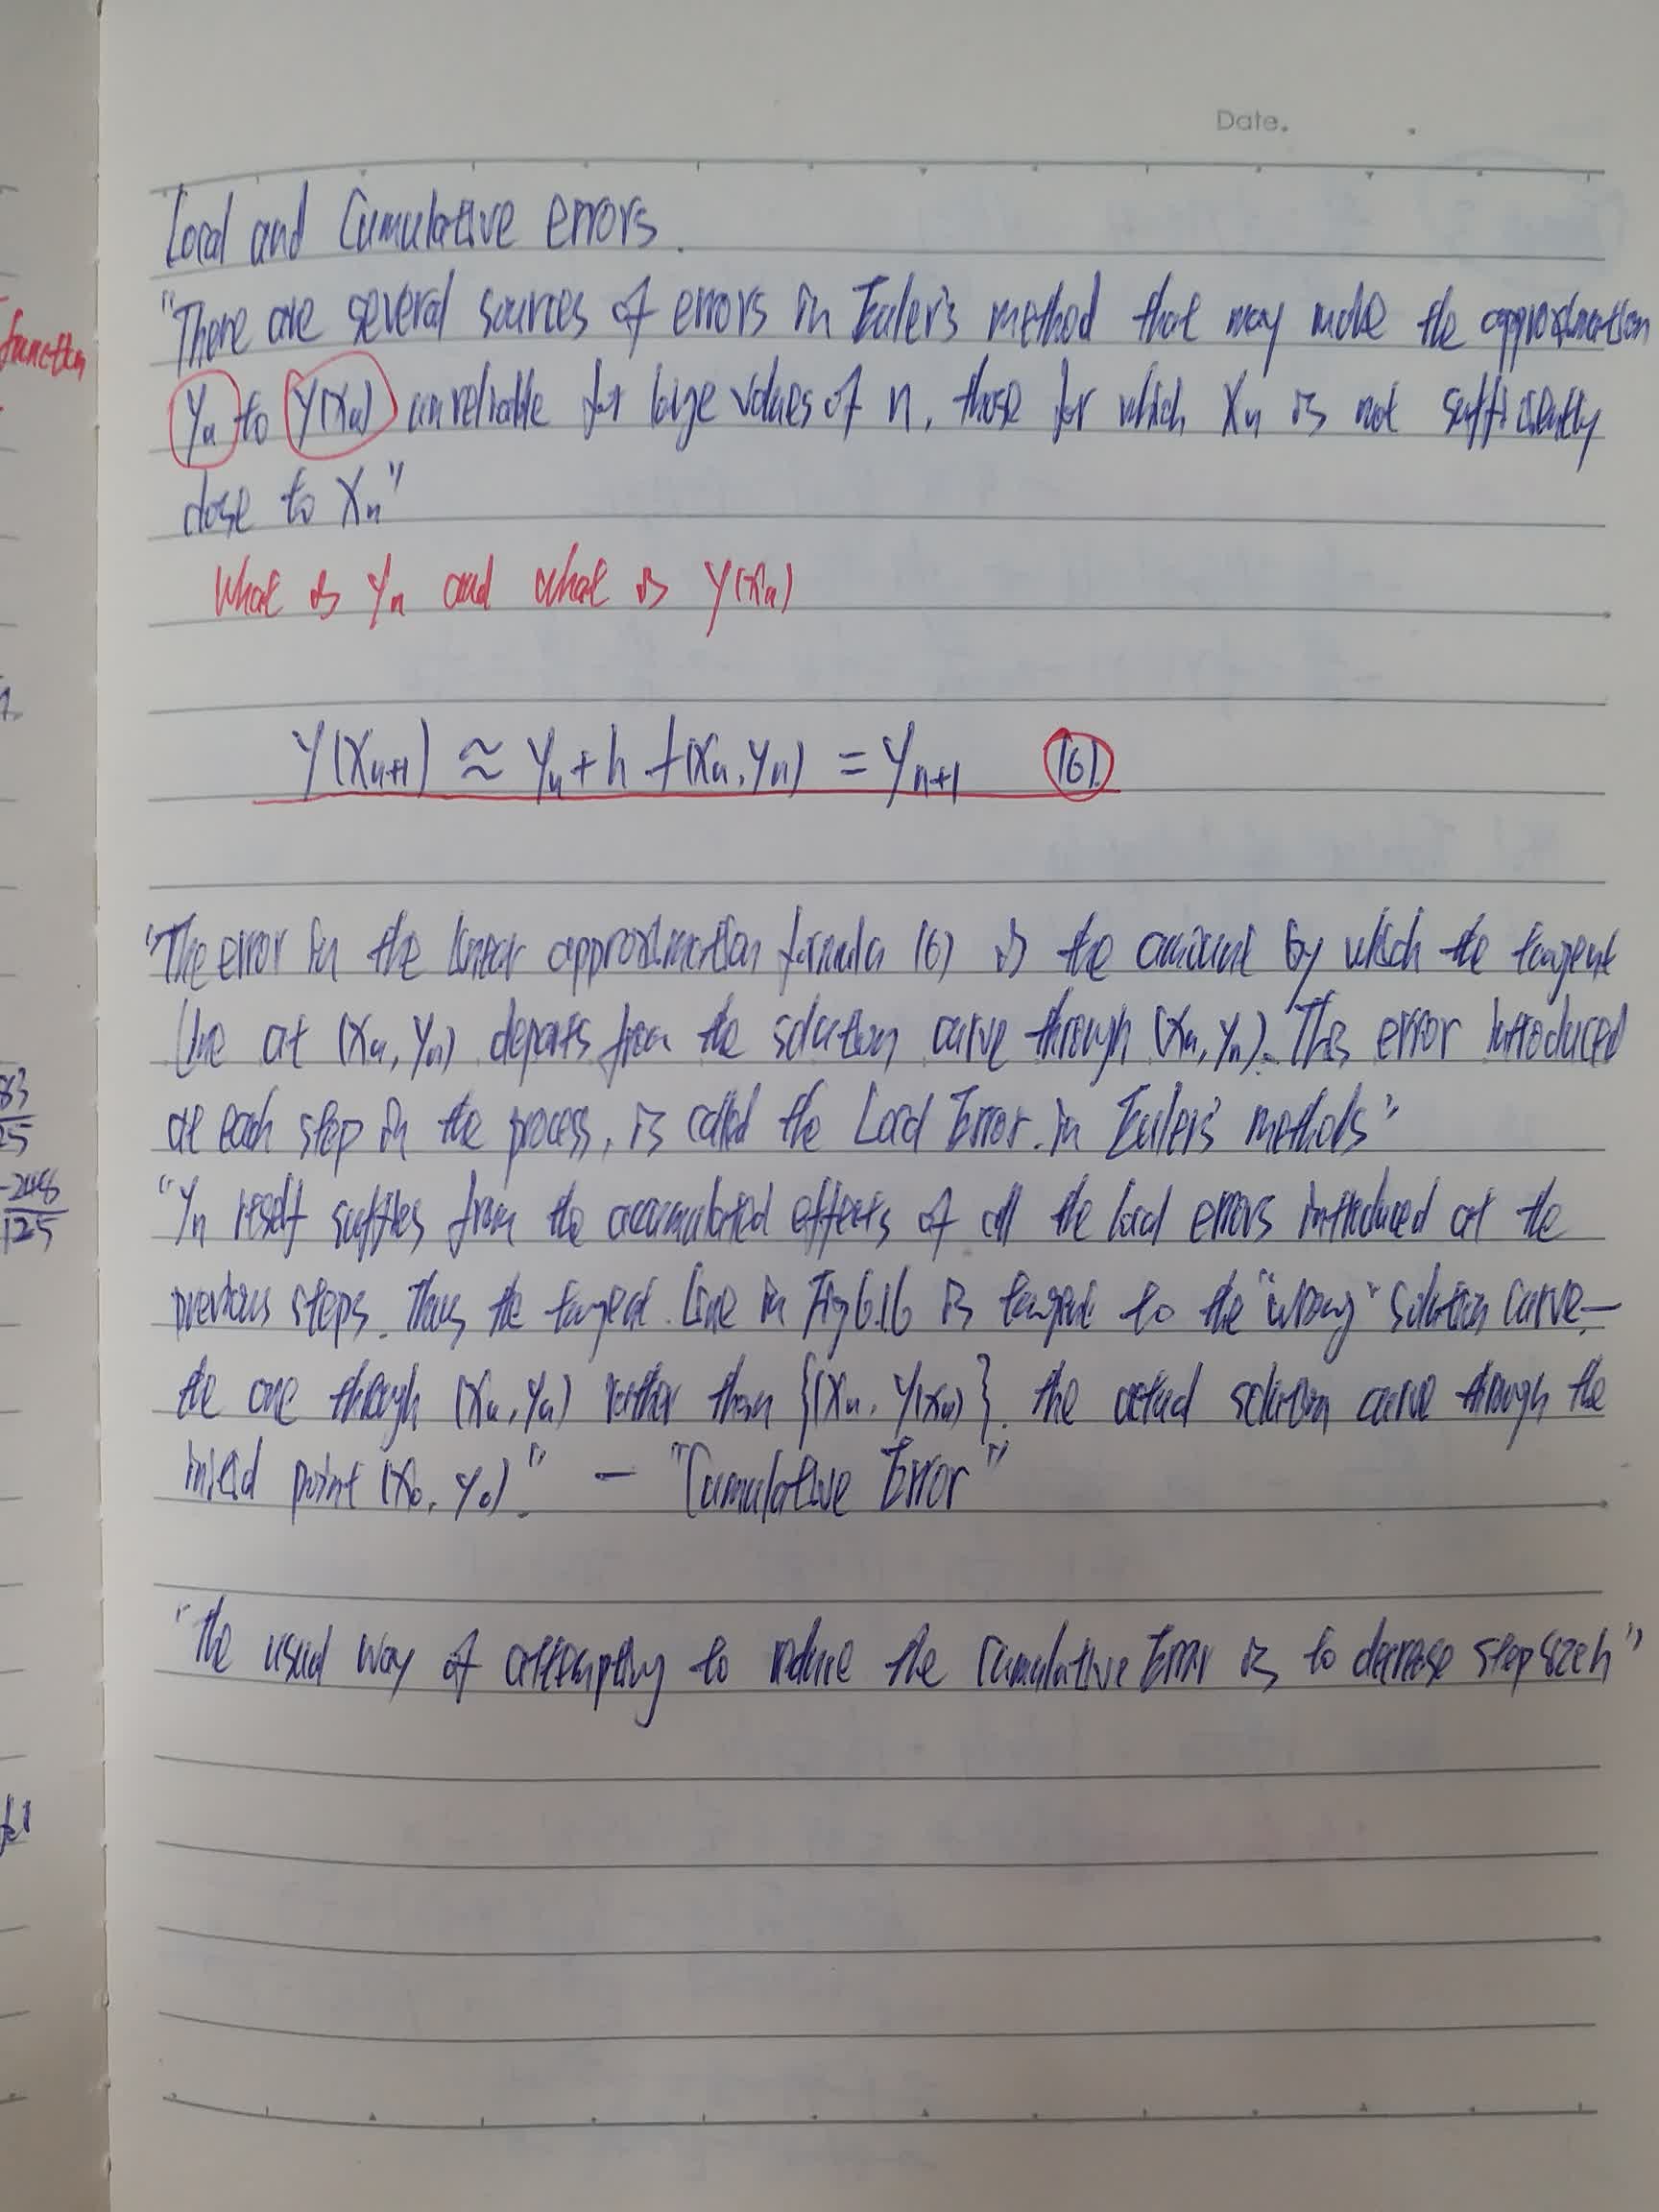 Date.
Local and Cumulative errors.
"There are several sources of errors in Euler's method that may make the approximation
yn to y(xn) unreliable for large values of n, those for which xn is not sufficiently
close to xn"
What is yn and what is y(xn)
y(xn+1) ≈ yn + h f(xn, yn) = yn+1 (6).
"The error in the linear approximation formula (6) is the amount by which the tangent
line at (xn, yn) departs from the solution curve through (xn, yn). This error introduced
at each step in the process, is called the Local Error. in Euler's methods"
"yn itself suffles from the accumulated effects of all the local errors introduced at the
previous steps. Thus the tangent line in Fig 6.16 is tangent to the "wrong" solution curve—
the one through (xn, yn) rather than {(xn, y(xn)}. the actual solution curve through the
initial point (x0, y0)." – "Cumulative Error"
"the usual way of attempting to reduce the Cumulative Error is to decrease step size h"
function
83
25
-248
125